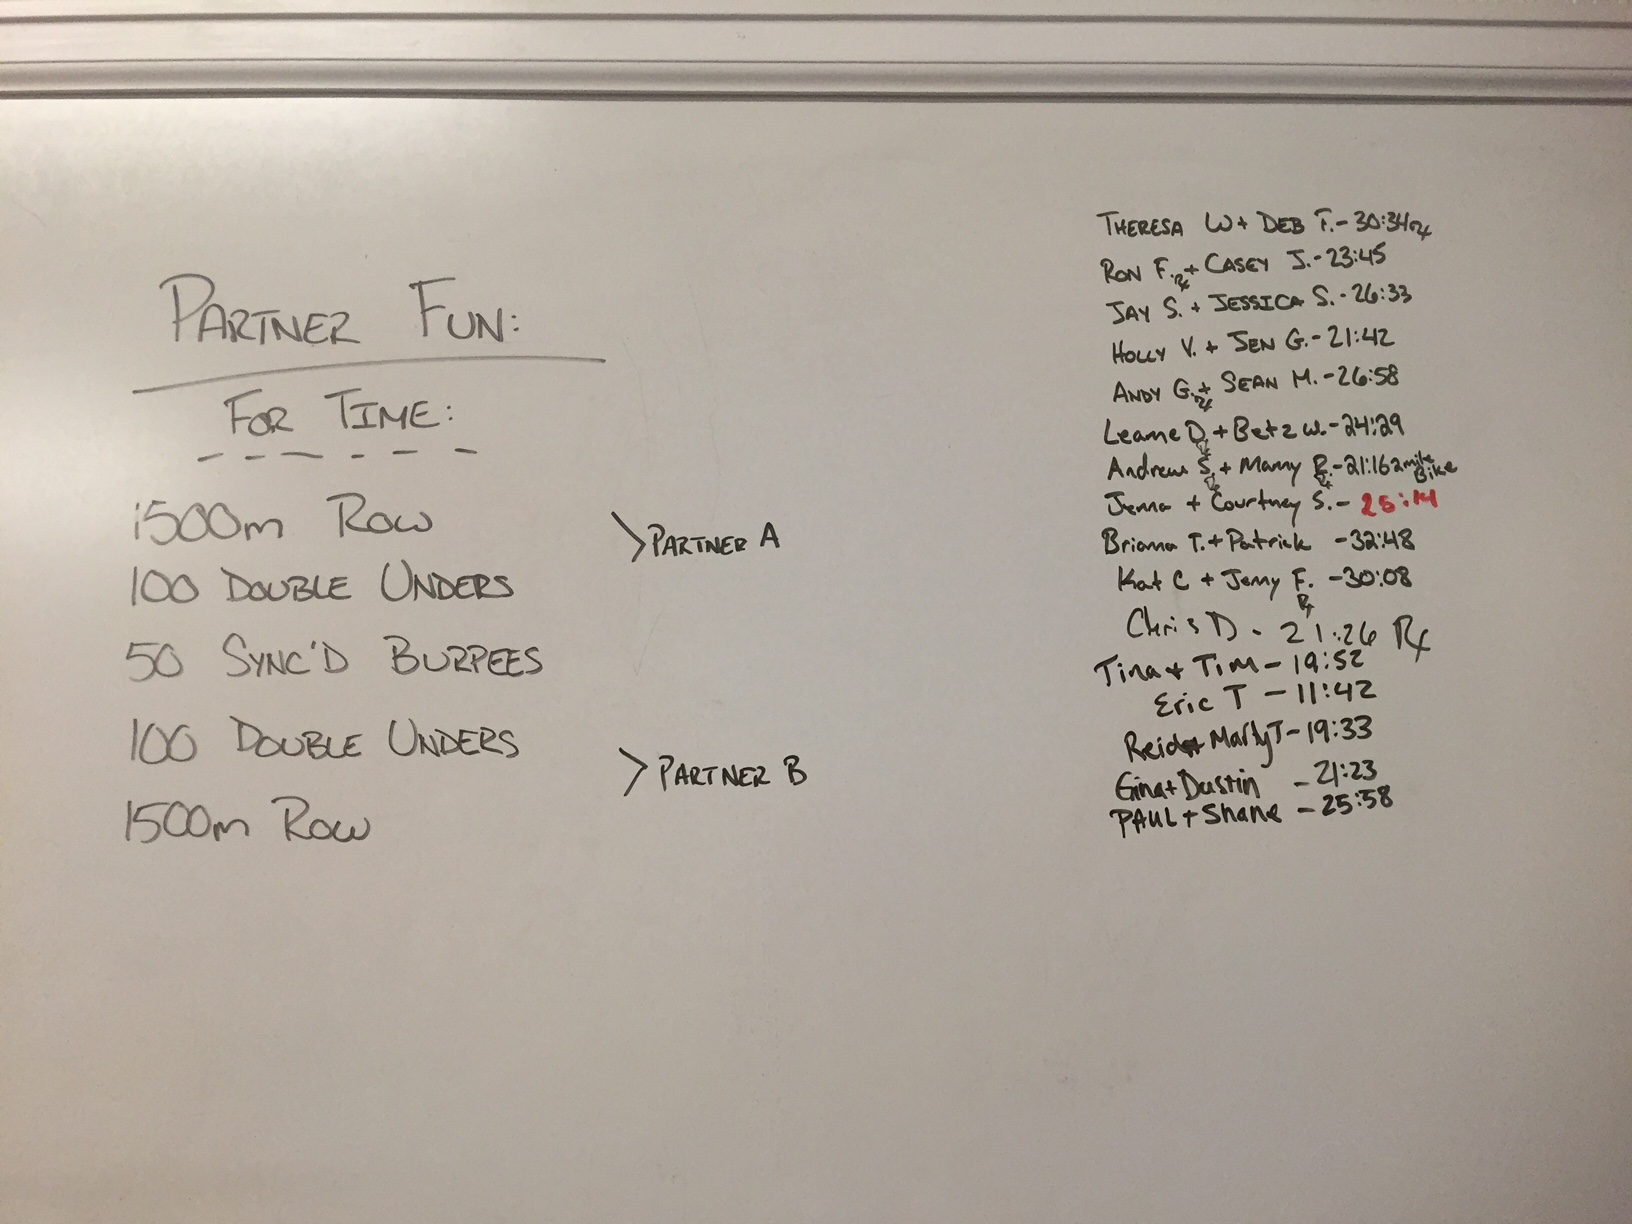 PARTNER FUN:
FOR TIME:
1500m ROW
>PARTNER A
100 DOUBLE UNDERS
50 SYNC'D BURPEES
100 DOUBLE UNDERS
>PARTNER B
1500m ROW
THERESA W + DEB T. - 30:34 Rx
RON F. Rx + CASEY J. - 23:45
JAY S. + JESSICA S. - 26:33
HOLLY V. + JEN G. - 21:42
ANDY G. Rx + SEAN M. - 26:58
Leanne D. + Betz W. - 24:29
Andrew S. + Manny R. Rx - 21:16 2 mile Bike
Jenna + Courtney S. - 25:14
Brianna T. + Patrick - 32:48
Kat C + Jenny F. Rx - 30:08
Chris D - 21:26 Rx
Tina + Tim - 19:52
Eric T - 11:42
Reid + Marly T - 19:33
Gina + Dustin - 21:23
PAUL + Shane - 25:58